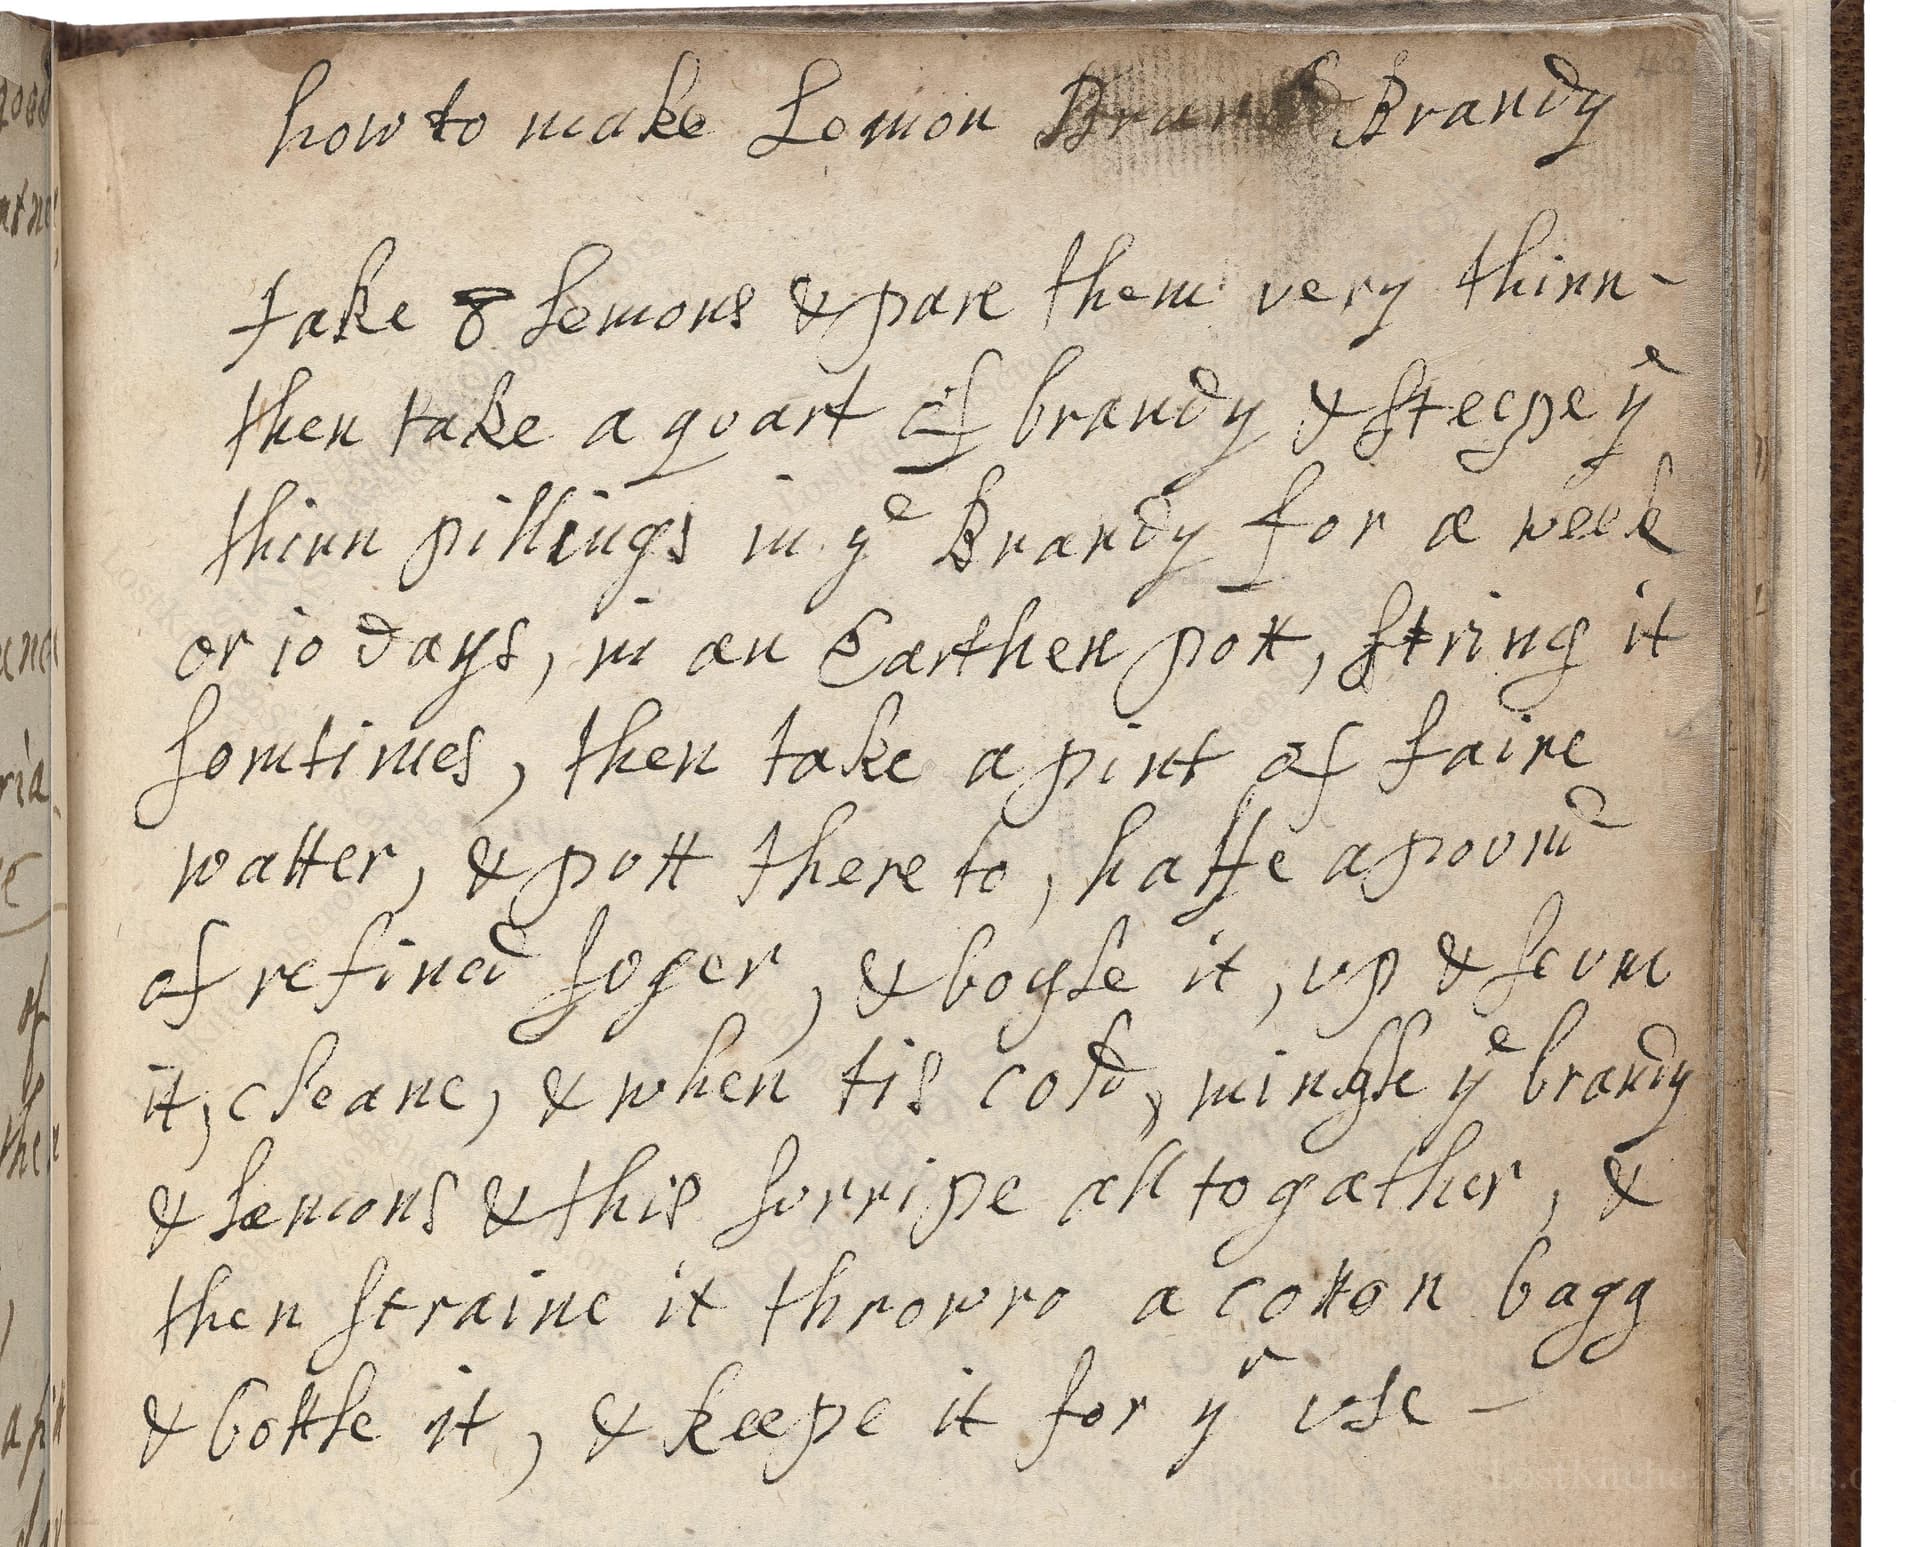 how to make Lemon Brandy
take 8 lemons & pare them very thinn -
then take a quart of brandy & steepe yᵉ
thinn pillings in yᵉ Brandy for a week
or 10 days, in an Earthen pott, string it
somtimes, then take a pint of faire
watter, & putt there to, halfe a pound
of refined soger, & boyle it, up & scum
it, cleane, & when tis cold, mingle yᵉ brandy
& lemons & this surripe all togather, &
then straine it throwro a cotton bagg
& bottle it, & keepe it for yʳ use -